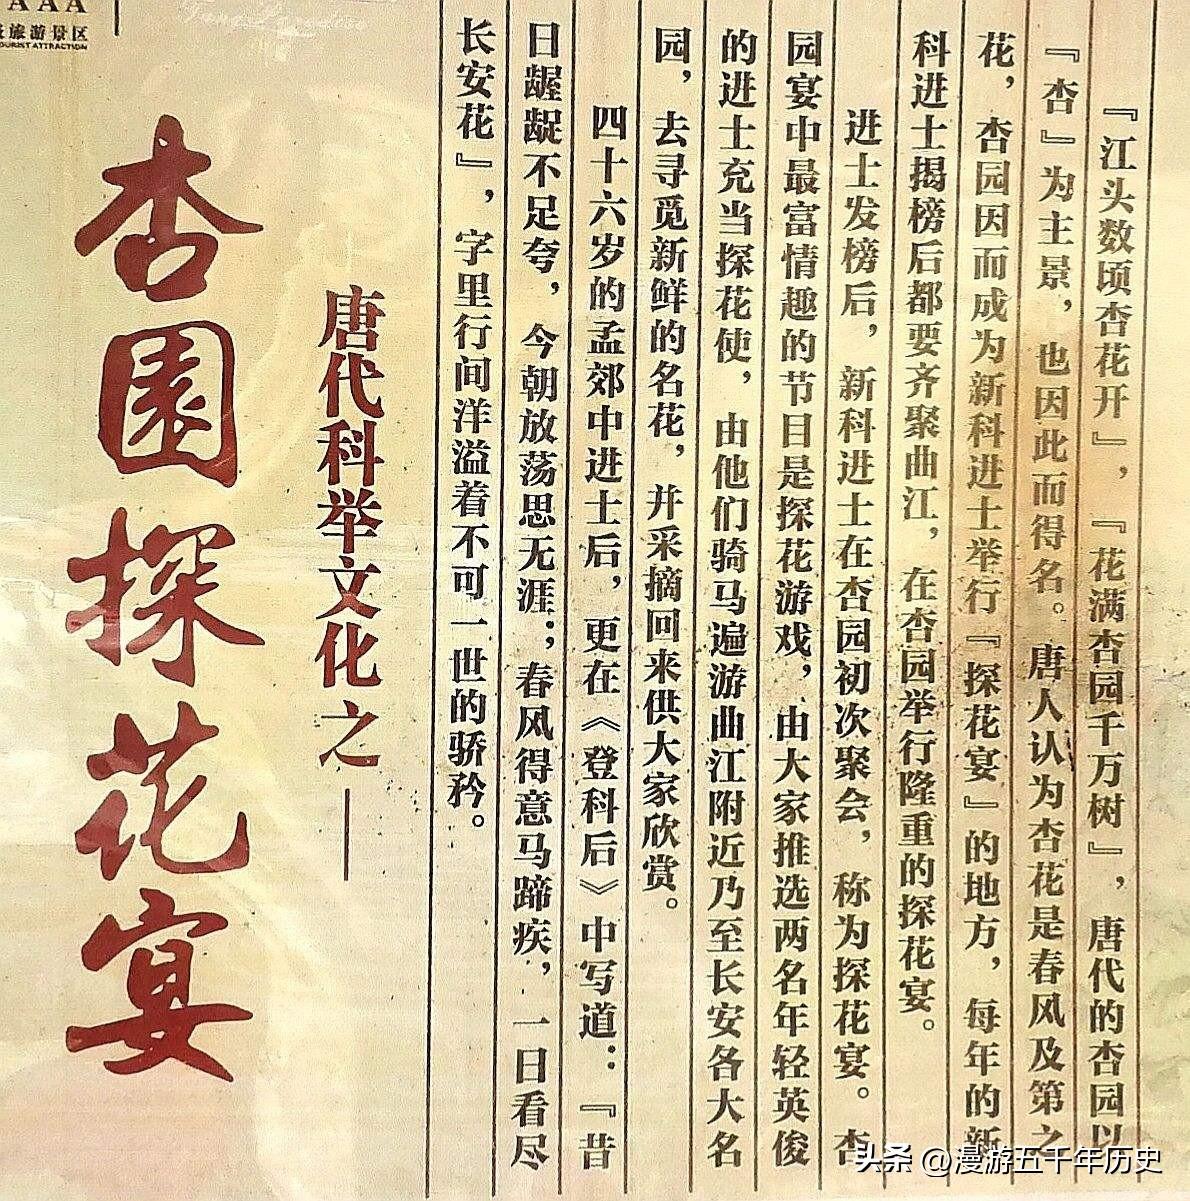 AAA
旅游景区
TOURIST ATTRACTION
『江头数顷杏花开』，『花满杏园千万树』，唐代的杏园以
『杏』为主景，也因此而得名。唐人认为杏花是春风及第之
花，杏园因而成为新科进士举行『探花宴』的地方，每年的新
科进士揭榜后都要齐聚曲江，在杏园举行隆重的探花宴。
进士发榜后，新科进士在杏园初次聚会，称为探花宴。杏
园宴中最富情趣的节目是探花游戏，由大家推选两名年轻英俊
的进士充当探花使，由他们骑马遍游曲江附近乃至长安各大名
园，去寻觅新鲜的名花，并采摘回来供大家欣赏。
四十六岁的孟郊中进士后，更在《登科后》中写道：『昔
日龌龊不足夸，今朝放荡思无涯；春风得意马蹄疾，一日看尽
长安花』，字里行间洋溢着不可一世的骄矜。
唐代科举文化之——
杏園探花宴
头条 @漫游五千年历史